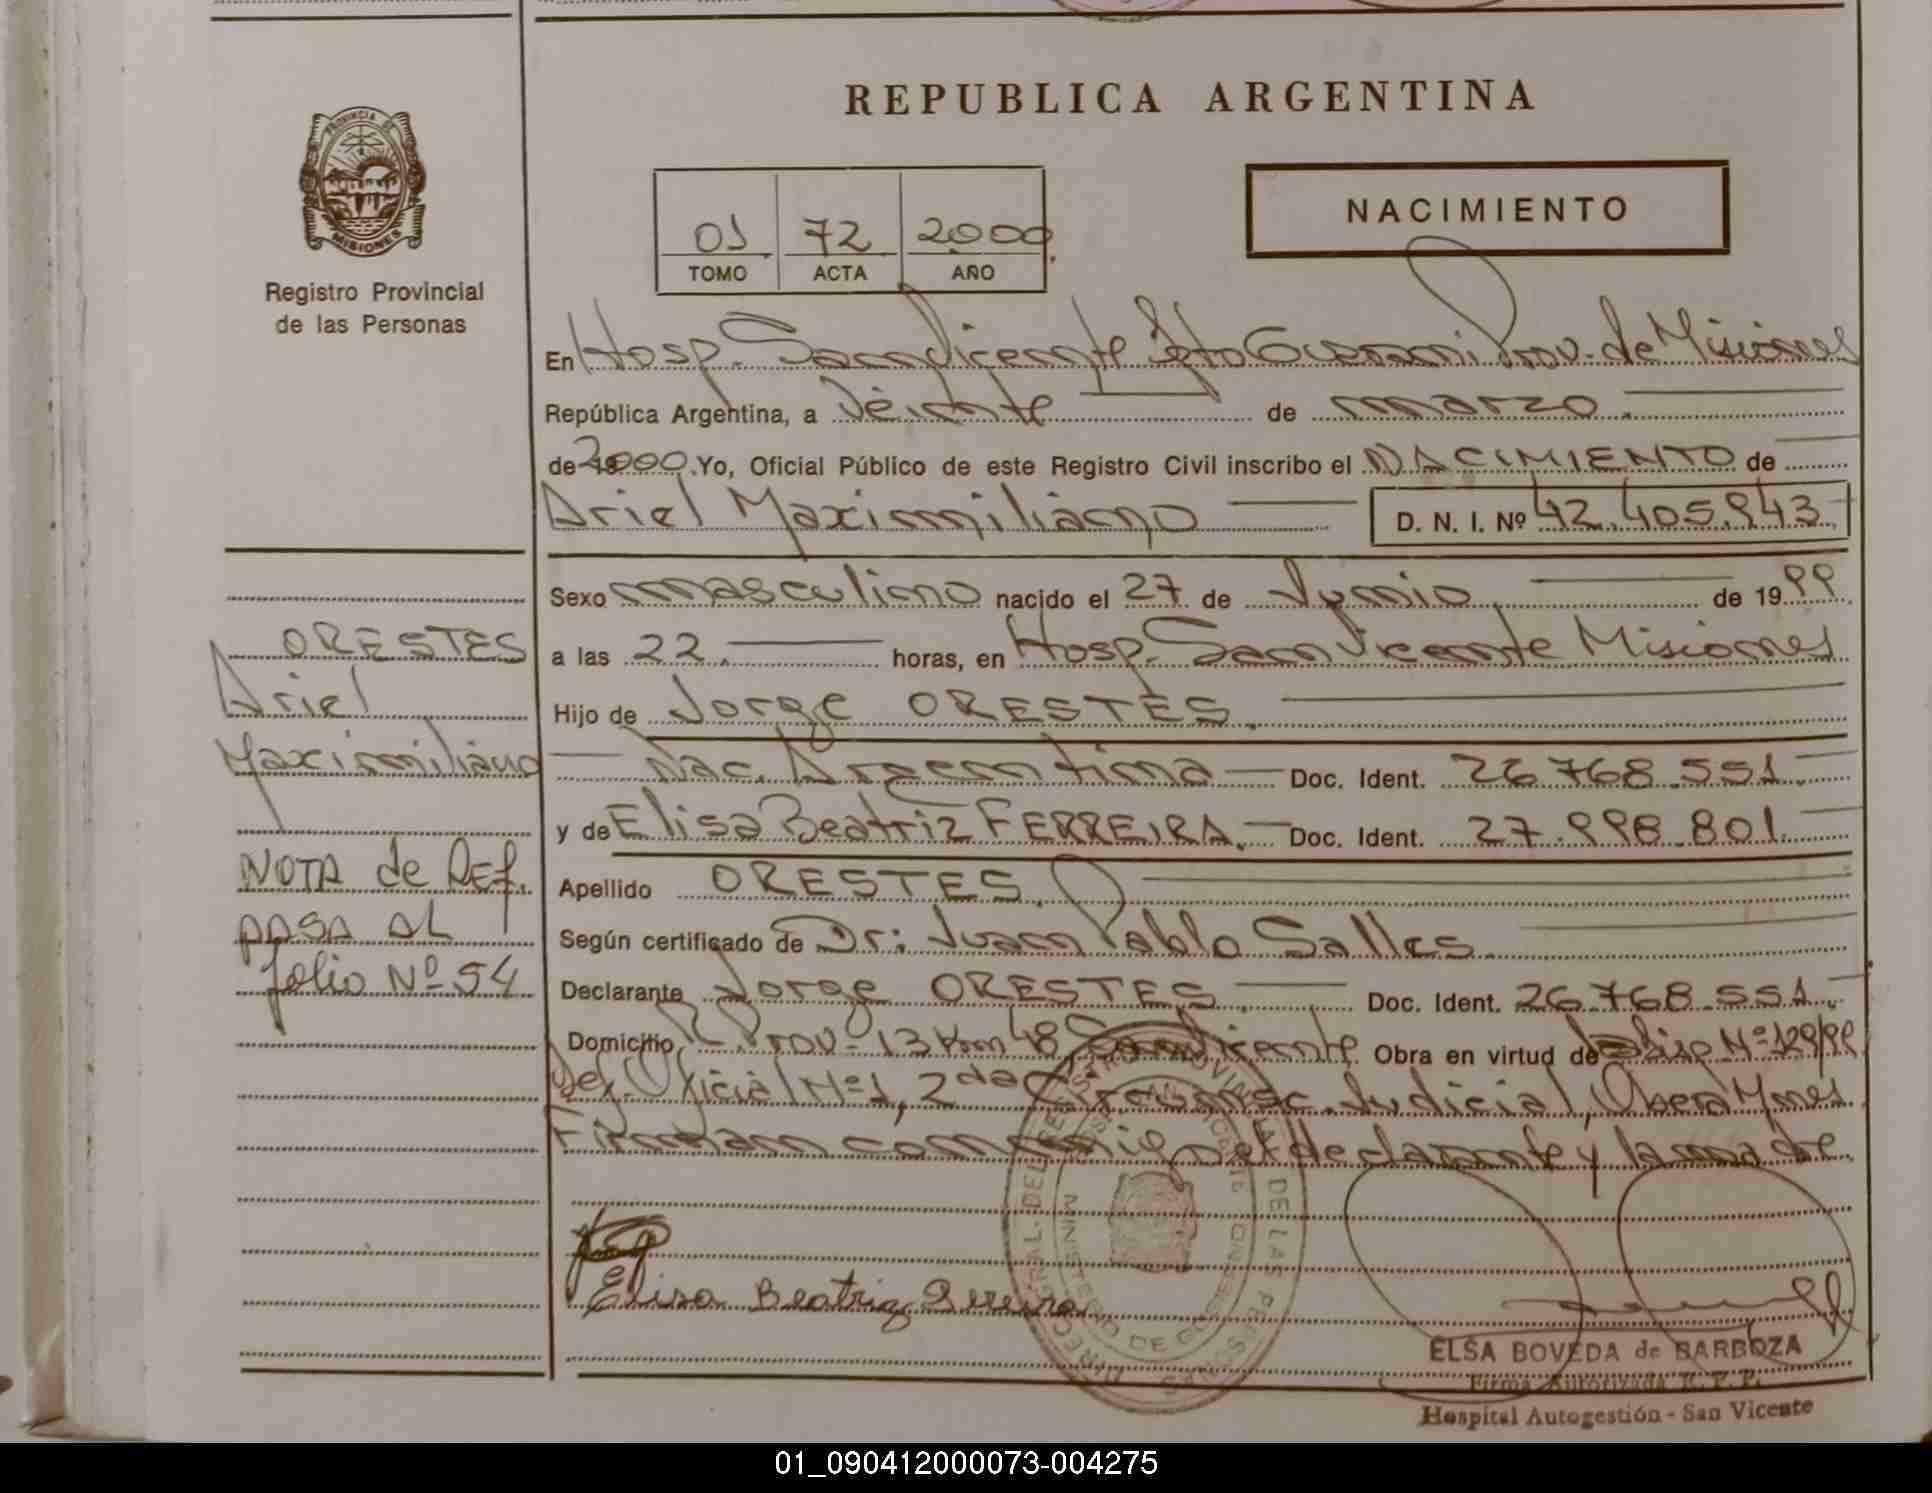 REPUBLICA ARGENTINA
PROVINCIA DE
MISIONES
Registro Provincial
de las Personas
01 72 2000
TOMO ACTA AÑO
NACIMIENTO
En Hosp. San Vicente Dpto Guaraní Prov. de Misiones
República Argentina, a Veinte de marzo.
de 2000. Yo, Oficial Público de este Registro Civil inscribo el NACIMIENTO de
Ariel Maximiliano D. N. I. Nº 42.405.943
Sexo masculino nacido el 27 de Junio de 1999
a las 22. horas, en Hosp. San Vicente Misiones
Hijo de Jorge ORESTES.
Nac. Argentina Doc. Ident. 26.768.551.
y de Elisa Beatriz FERREIRA. Doc. Ident. 27.998.801.
Apellido ORESTES.
Según certificado de Dr: Juan Pablo Salles.
Declarante Jorge ORESTES Doc. Ident. 26.768.551.
Domicilio R. Prov. 13 Km 48 San Vicente Obra en virtud de Nº 129/99
Def. Oficial Nº 1, 2da Circunsc. Judicial, Oberá Mnes.
Firman conmigo el declarante y la madre.
ORESTES
Ariel
Maximiliano
NOTA de REF.
PASA AL
folio Nº 54
Elisa Beatriz Ferreira
MINISTERIO DE GOBIERNO
DE LAS PERSONAS
ELSA BOVEDA de BARBOZA
Firma Autorizada R. P. P.
Hospital Autogestión - San Vicente
01_090412000073-004275